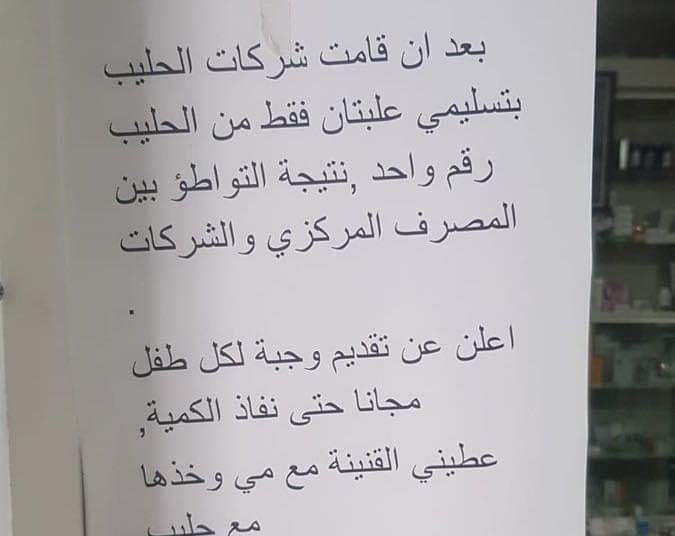 بعد ان قامت شركات الحليب
بتسليمي علبتان فقط من الحليب
رقم واحد ,نتيجة التواطؤ بين
المصرف المركزي والشركات
.
اعلن عن تقديم وجبة لكل طفل
مجانا حتى نفاذ الكمية,
عطيني القنينة مع مي وخذها
مع حليب